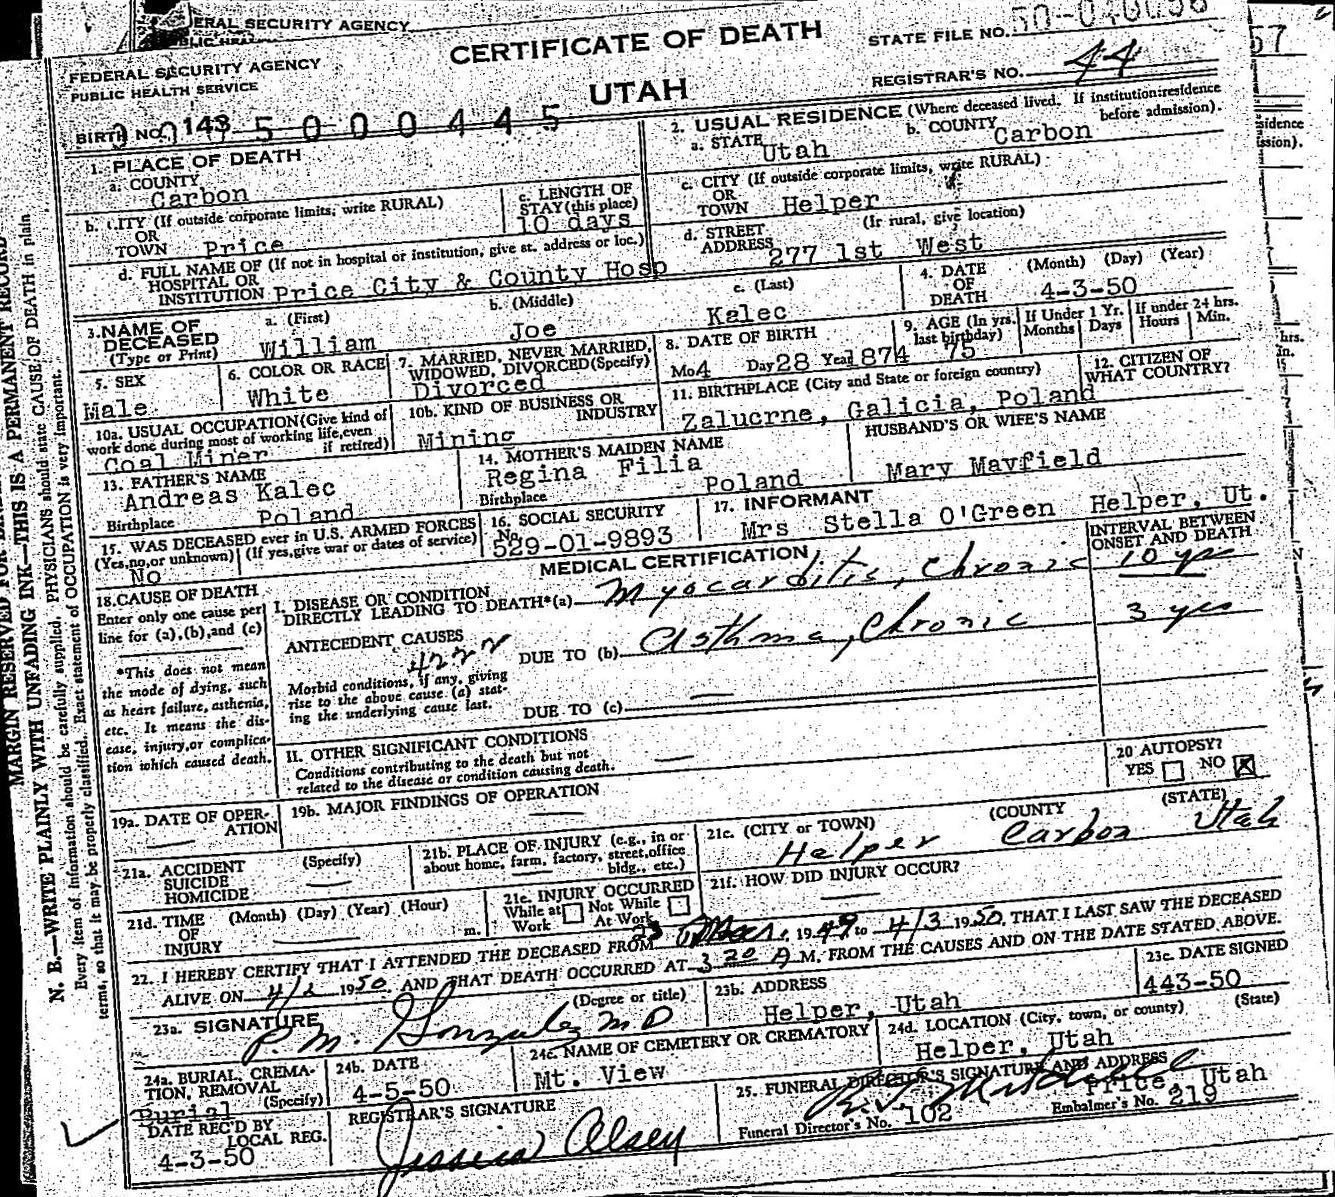 ERAL SECURITY AGENCY
FEDERAL SECURITY AGENCY
PUBLIC HEALTH SERVICE
CERTIFICATE OF DEATH
UTAH
STATE FILE NO.
REGISTRAR'S NO. 44
BIRTH NO. 143
5 0 0 0 4 4 5
1. PLACE OF DEATH
a. COUNTY
Carbon
b. CITY (If outside corporate limits, write RURAL)
OR
TOWN Price
c. LENGTH OF
STAY (this place)
10 days
d. FULL NAME OF (If not in hospital or institution, give st. address or loc.)
HOSPITAL OR
INSTITUTION Price City & County Hosp
2. USUAL RESIDENCE (Where deceased lived. If institution: residence
before admission).
a. STATE
Utah
b. COUNTY
Carbon
c. CITY (If outside corporate limits, write RURAL)
OR
TOWN Helper
d. STREET
ADDRESS
(If rural, give location)
277 1st West
3. NAME OF
DECEASED
(Type or Print)
a. (First)
William
b. (Middle)
Joe
c. (Last)
Kalec
4. DATE
OF
DEATH
(Month) (Day) (Year)
4-3-50
5. SEX
Male
6. COLOR OR RACE
White
7. MARRIED, NEVER MARRIED,
WIDOWED, DIVORCED (Specify)
Divorced
8. DATE OF BIRTH
Mo 4 Day 28 Year 1874
9. AGE (In yrs.
last birthday)
75
If Under 1 Yr.
Months Days
If under 24 hrs.
Hours Min.
10a. USUAL OCCUPATION (Give kind of
work done during most of working life, even
if retired)
Coal Miner
10b. KIND OF BUSINESS OR
INDUSTRY
Mining
11. BIRTHPLACE (City and State or foreign country)
Zalucrne, Galicia, Poland
12. CITIZEN OF
WHAT COUNTRY?
13. FATHER'S NAME
Andreas Kalec
Birthplace Poland
14. MOTHER'S MAIDEN NAME
Regina Filia
Birthplace Poland
HUSBAND'S OR WIFE'S NAME
Mary Mayfield
15. WAS DECEASED ever in U.S. ARMED FORCES
(Yes, no, or unknown) (If yes, give war or dates of service)
No
16. SOCIAL SECURITY
No.
529-01-9893
17. INFORMANT
Mrs Stella O'Green Helper, Ut.
MEDICAL CERTIFICATION
INTERVAL BETWEEN
ONSET AND DEATH
18. CAUSE OF DEATH
Enter only one cause per
line for (a), (b), and (c)
*This does not mean
the mode of dying, such
as heart failure, asthenia,
etc. It means the dis-
ease, injury, or complica-
tion which caused death.
I. DISEASE OR CONDITION
DIRECTLY LEADING TO DEATH*(a) Myocarditis, Chronic 10 yrs
ANTECEDENT CAUSES
DUE TO (b) Asthma, Chronic 3 yrs
Morbid conditions, if any, giving
rise to the above cause (a) stat-
ing the underlying cause last.
DUE TO (c)
II. OTHER SIGNIFICANT CONDITIONS
Conditions contributing to the death but not
related to the disease or condition causing death.
20 AUTOPSY?
YES NO X
19a. DATE OF OPER-
ATION
19b. MAJOR FINDINGS OF OPERATION
21a. ACCIDENT
SUICIDE
HOMICIDE
(Specify)
21b. PLACE OF INJURY (e.g., in or
about home, farm, factory, street, office
bldg., etc.)
21c. (CITY or TOWN) (COUNTY (STATE)
Helper Carbon Utah
21d. TIME
OF
INJURY
(Month) (Day) (Year) (Hour)
m.
21e. INJURY OCCURRED
While at Not While
Work At Work
21f. HOW DID INJURY OCCUR?
22. I HEREBY CERTIFY THAT I ATTENDED THE DECEASED FROM 23 Mar. 1949 to 4/3 1950, THAT I LAST SAW THE DECEASED
ALIVE ON 1950 AND THAT DEATH OCCURRED AT 3 20 A M. FROM THE CAUSES AND ON THE DATE STATED ABOVE.
23a. SIGNATURE
(Degree or title)
P. M. Gonzalez M D
23b. ADDRESS
Helper, Utah
23c. DATE SIGNED
443-50
24a. BURIAL, CREMA-
TION, REMOVAL
(Specify)
Burial
24b. DATE
4-5-50
24c. NAME OF CEMETERY OR CREMATORY
Mt. View
24d. LOCATION (City, town, or county) (State)
Helper, Utah
DATE REC'D BY
LOCAL REG.
4-3-50
REGISTRAR'S SIGNATURE
25. FUNERAL DIRECTOR'S SIGNATURE AND ADDRESS
Price, Utah
Funeral Director's No. 102
Embalmer's No. 219
MARGIN RESERVED FOR
N. B.—WRITE PLAINLY WITH UNFADING INK—THIS IS A PERMANENT RECORD
Every item of information should be carefully supplied. PHYSICIANS should state CAUSE OF DEATH in plain
terms, so that it may be properly classified. Exact statement of OCCUPATION is very important.